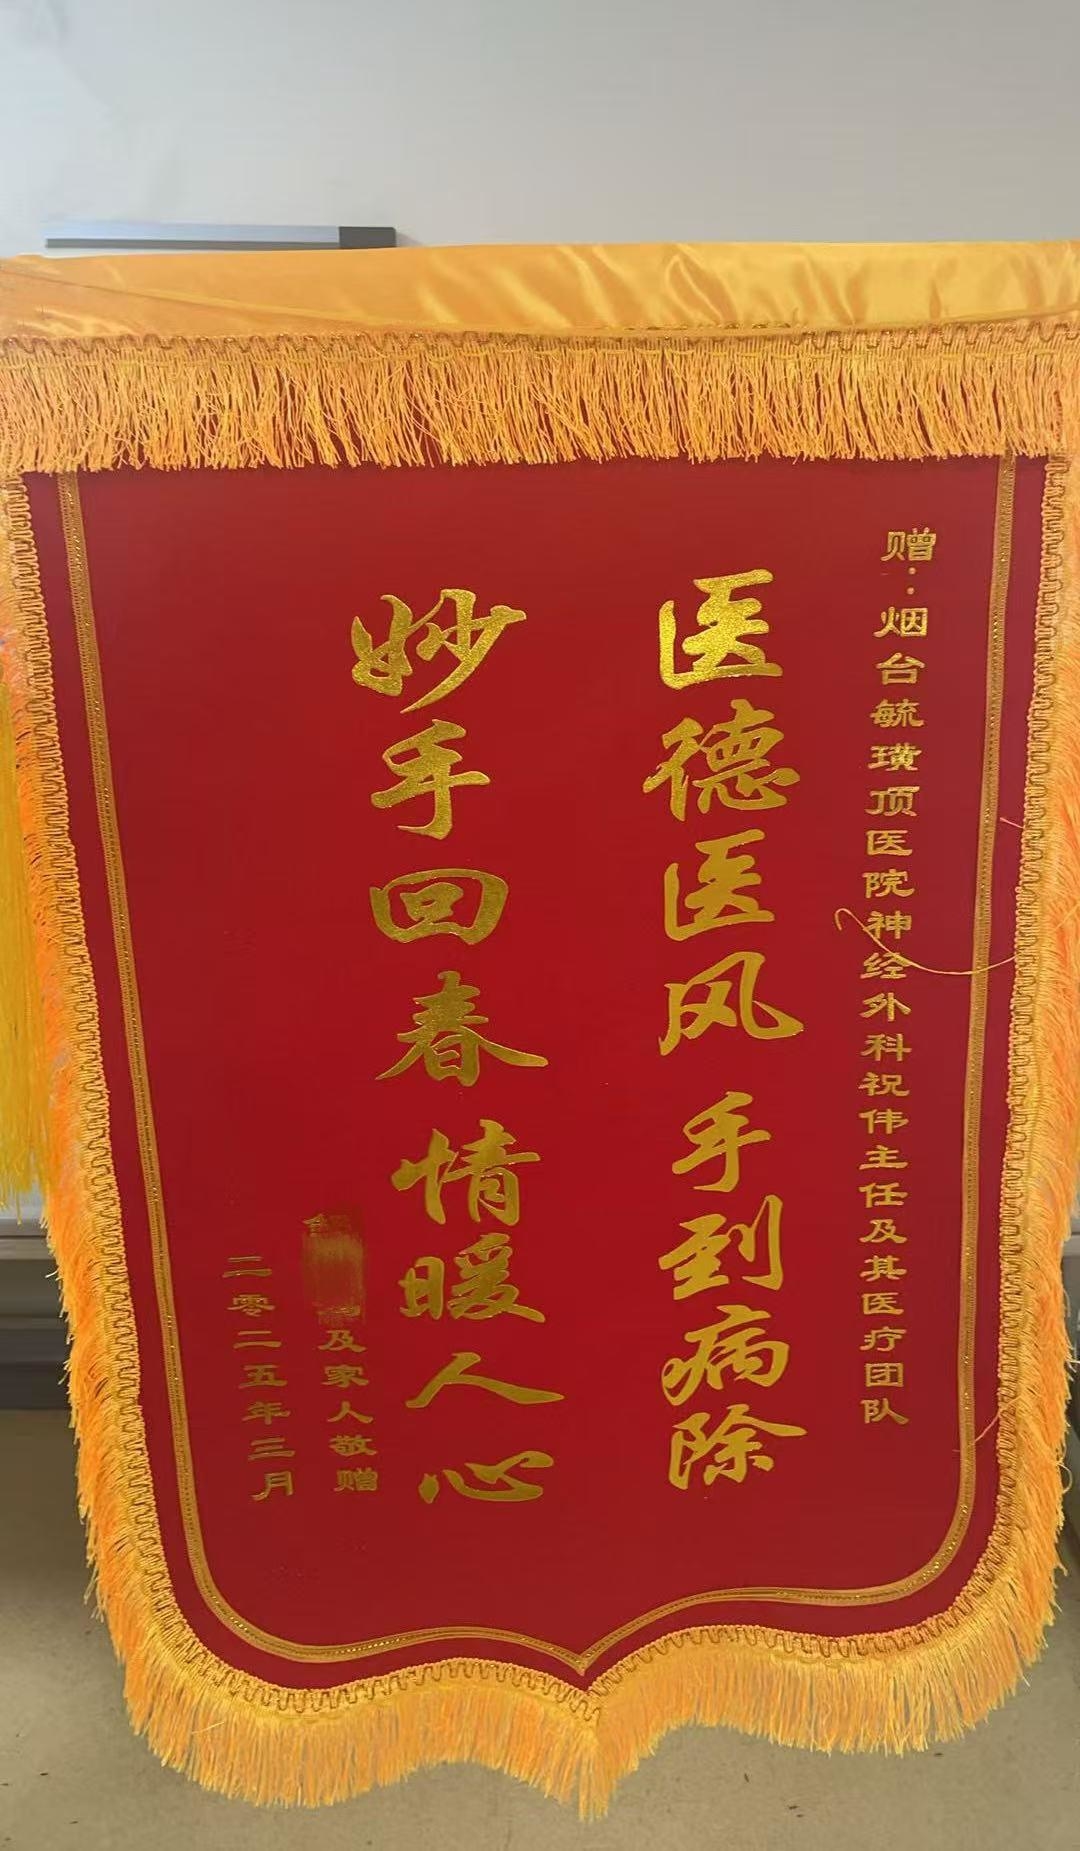 赠：烟台毓璜顶医院神经外科祝伟主任及其医疗团队
医德医风 手到病除
妙手回春 情暖人心
及家人敬赠
二零二五年三月